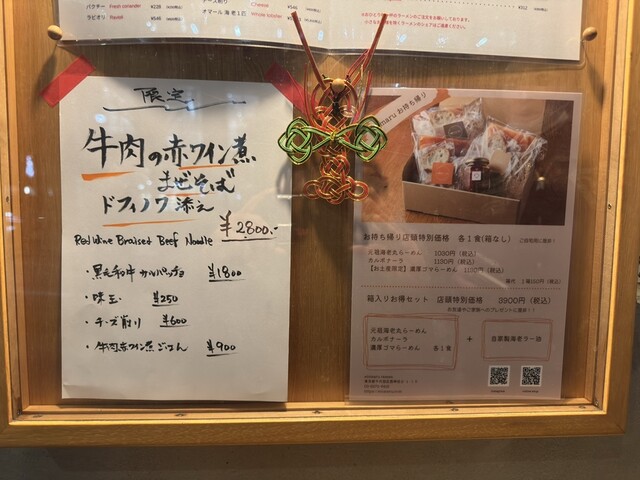 パクチー Fresh coriander ¥228
ラビオリ Ravioli ¥546
チーズ削り Cheese ¥546
オマール海老1匹 Whole lobster
¥312
限定
牛肉の赤ワイン煮
まぜそば
ドフィノワ添え
¥2800.-
Red Wine Braised Beef Noodle
・黒毛和牛カルパッチョ ¥1800
・味玉 ¥250
・チーズ削り ¥600
・牛肉赤ワイン煮ごはん ¥900
maru お持ち帰り
お持ち帰り店頭特別価格 各1食(箱なし)
元祖海老丸らーめん 1050円(税込)
カルボナーラ 1100円(税込)
【お土産限定】濃厚ゴマらーめん 1150円(税込)
箱入りお得セット 店頭特別価格 3900円(税込)
元祖海老丸らーめん
カルボナーラ
濃厚ゴマらーめん 各1食
+
自家製海老ラー油